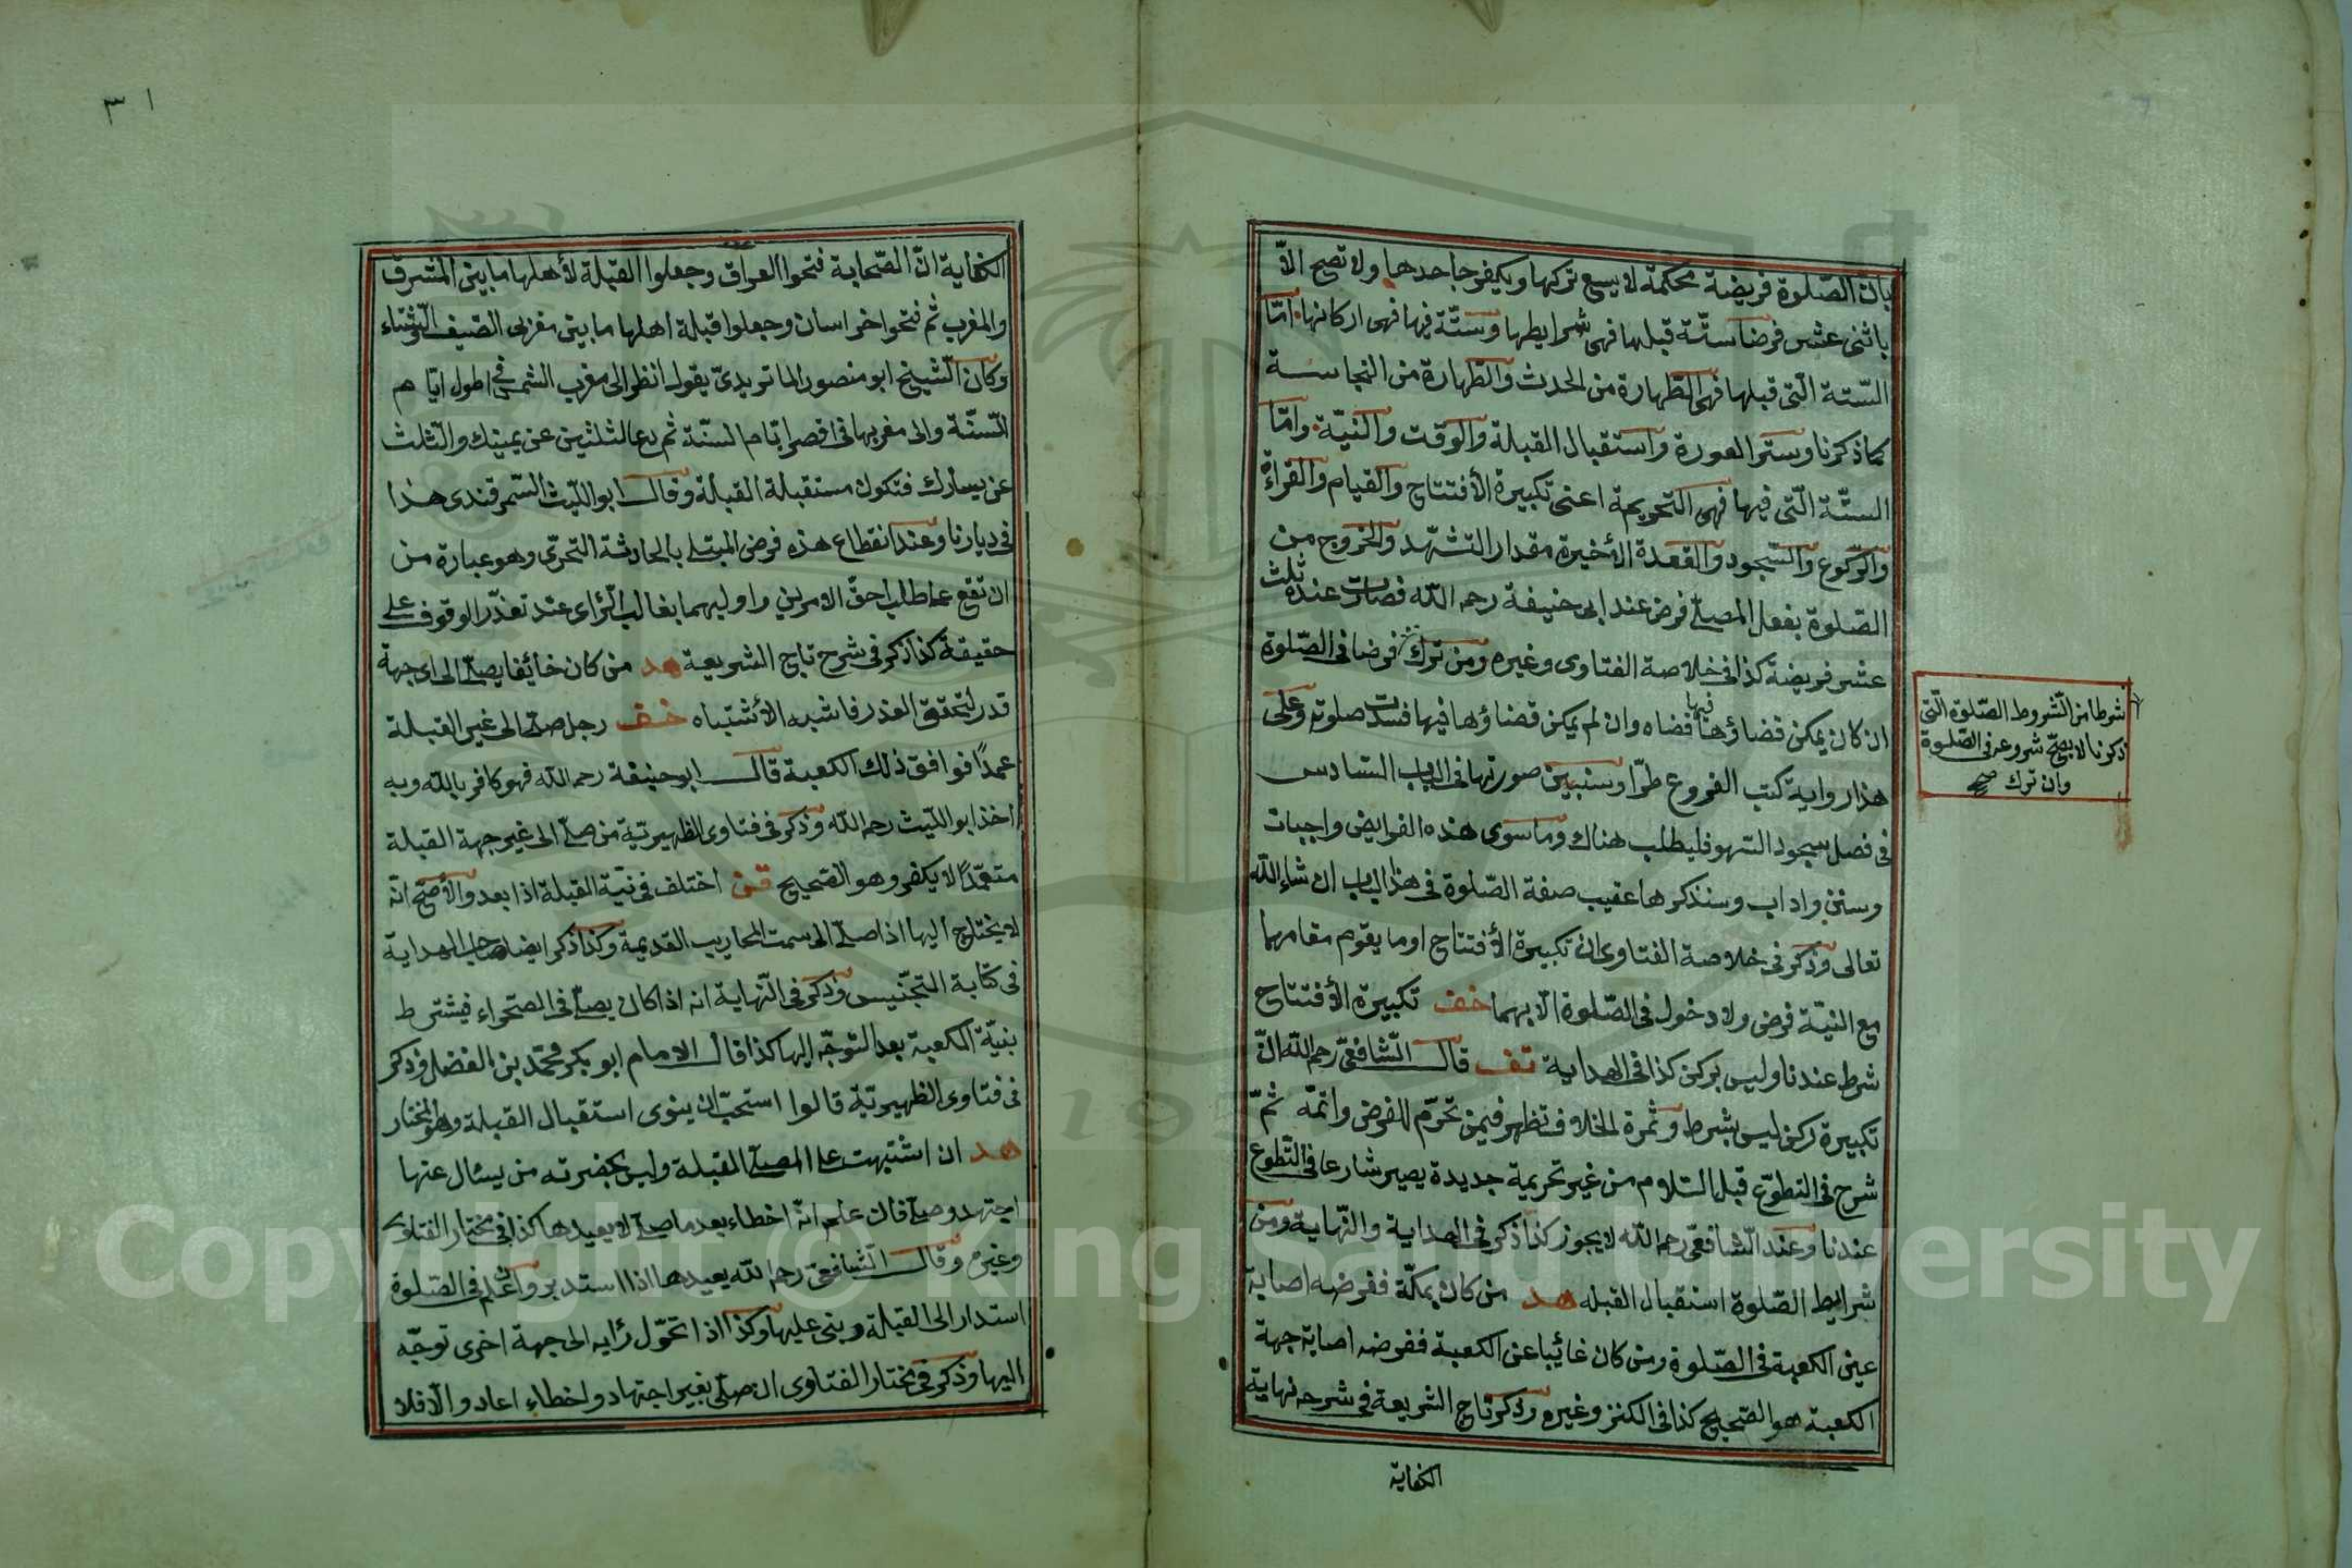 بان الصّلوة فريضة محكمة لا يسع تركها ويكفر جاحدها ولا تصح الاّ
باثنى عشر فرضا ستّة قبلها فهى شرايطها وستّة فيها فهى اركانها امّا
السّتة الّتى قبلها فهى الطّهارة من الحدث والطّهارة من النجاسة
كما ذكرنا وستر العورة واستقبال القبلة والوقت والنيّة وامّا
الستّة الّتى فيها فهى التحريمة اعنى تكبيرة الأفتتاح والقيام والقراءة
والرّكوع والسّجود والقعدة الأخيرة مقدار التشهّد والخروج من
الصّلوة بفعل المصلّى فرض عند ابى حنيفة رحمه اللّه فصارت عنده ثلث
عشر فريضة كذا فى خلاصة الفتاوى وغيره ومن ترك فرضا فى الصّلوة
ان كان يمكن قضاؤها فيها قضاه وان لم يمكن قضاؤها فيها فسدت صلوته وعلى
هذا رواية كتب الفروع طرّا وسنبيّن صورتها فى الباب السّادس
فى فصل سجود السّهو فليطلب هناك وما سوى هذه الفرايض واجبات
وسنن واداب وسنذكرها عقيب صفة الصّلوة فى هذا الباب ان شاء اللّه
تعالى وذكر فى خلاصة الفتاوى ان تكبيرة الأفتتاح او ما يقوم مقامهما
مع النيّة فرض ولا دخول فى الصّلوة الّا بهما خف تكبيرة الأفتتاح
شرط عندنا وليس بركن كذا فى الهداية تف قال الشّافعىّ رحمه اللّه انّ
تكبيرة ركن ليس بشرط وثمرة الخلاف تظهر فيمن تحرّم للفرض واتمّه ثمّ
شرح فى التطوّع قبل السّلام من غير تحريمة جديدة يصير شارعا فى التّطوع
عندنا وعند الشّافعىّ رحمه اللّه لا يجوز كذا ذكر فى الهداية والنّهاية ومن
شرايط الصّلوة استقبال القبله هد من كان بمكّة ففرضه اصابة
عين الكعبة فى الصّلوة ومن كان غائبا عن الكعبة ففرضه اصابة جهة
الكعبة هو الصّحيح كذا فى الكنز وغيره وذكر تاج الشريعة فى شرحه نهاية
الكفاية
شرطا من الشّروط الصّلوة الّتى
ذكرنا لا يصحّ شروعه فى الصّلوة
وان ترك صح
٣١
الكفاية انّ الصّحابة فتحوا العراق وجعلوا القبلة لأهلها ما بين المشرق
والمغرب ثم فتحوا خراسان وجعلوا قبلة اهلها ما بين مغربى الصّيف والشّتاء
وكان الشّيخ ابو منصور الماتريدىّ يقول انظر الى مغرب الشمس فى اطول ايّام
السّنة والى مغربها فى اقصر ايّام السّنة ثم دع الثلثين عن يمينك والثّلث
عن يسارك فتكون مستقبلة القبلة وقال ابو اللّيث السّمرقندى هذا
فى ديارنا وعند انقطاع هذه فرض المبتلى بالحادثة التحرّى وهو عبارة من
ان تقع عما طلب احقّ الامرين واوليهما بغالب الرّاى عند تعذّر الوقوف على
حقيقة كذا ذكر فى شرح تاج الشريعة هد من كان خائفا يصلّى الى اى جهة
قدر لتحقق العذر فاشبه الأشتباه خف رجل صلّى الى غير القبلة
عمدًا فوافق ذلك الكعبة قال ابو حنيفة رحمه اللّه فهو كافر باللّه وبه
اخذ ابو اللّيث رحمه اللّه وذكر فى فتاوى الظهيريّة من صلّى الى غير جهة القبلة
متعمّدًا لا يكفر وهو الصّحيح قن اختلف فى نيّة القبلة اذا بعد والأصحّ انّه
لا يحتاج اليها اذا صلّى الى سمت المحاريب القديمة وكذا ذكر ايضا صاحب الهداية
فى كتابة التجنّيس وذكر فى النّهاية انه اذا كان يصلّى فى الصّحراء فيشترط
بنيّة الكعبة بعد التوجّه اليها كذا قال الامام ابو بكر محمّد بن الفضل وذكر
فى فتاوى الظهيريّة قالوا استحبّ ان ينوى استقبال القبلة وهو المختار
هد ان اشتبهت على المصلّى القبلة وليس بحضرته من يسئال عنها
اجتهد وصلّى فان علم انّه اخطاء بعد ما صلّى لا يعيدها كذا فى مختار الفتاوى
وغيره وقال الشّافعىّ رحمه اللّه يعيدها اذا استدبر وان علم فى الصّلوة
استدار الى القبلة وبنى عليها وكذا اذا تحوّل رأيه الى جهة اخرى توجّه
اليها وذكر فى مختار الفتاوى ان صلّى بغير اجتهاد واخطاء اعاد والّا فلا
Copyright © King Saud University